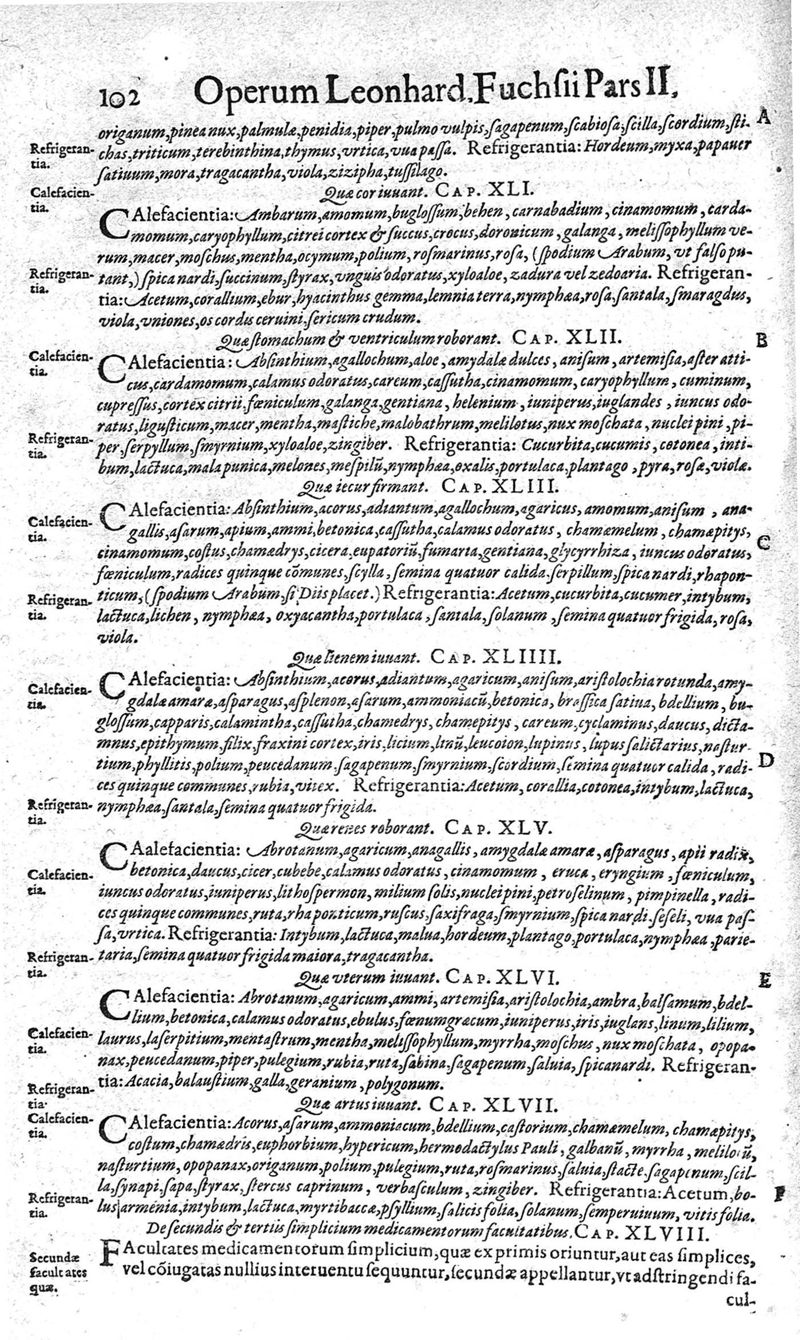 102 Operum Leonhard. Fuchsii Pars II.
origanum, pinea nux, palmulæ, penidia, piper, pulmo vulpis, sagapenum, scabiosa, scilla, scordium, sti- A
Refrigeran-
tia.
chas, triticum, terebinthina, thymus, vrtica, vua passa. Refrigerantia: Hordeum, myxa, papauer
satiuum, mora, tragacantha, viola, zizipha, tussilago.
Quæ cor iuuant. CAP. XLI.
Calefacien-
tia.
CAlefacientia: Ambarum, amomum, buglossum, behen, carnabadium, cinamomum, carda-
momum, caryophyllum, citrei cortex & succus, crocus, doronicum, galanga, melissophyllum ve-
rum, macer, moschus, mentha, ocymum, polium, rosmarinus, rosa, (spodium Arabum, vt falso pu-
Refrigeran-
tia.
tant,) spica nardi, succinum, styrax, vnguis odoratus, xyloaloe, zadura vel zedoaria. Refrigeran-
tia: Acetum, corallium, ebur, hyacinthus gemma, lemnia terra, nymphæa, rosa, santala, smaragdus,
viola, vniones, os cordis ceruini, sericum crudum.
Quæ stomachum & ventriculum roborant. CAP. XLII. B
Calefacien-
tia.
CAlefacientia: Absinthium, agallochum, aloe, amydalæ dulces, anisum, artemisia, aster atti-
cus, cardamomum, calamus odoratus, careum, cassutha, cinamomum, caryophyllum, cuminum,
cupressus, cortex citrii, fœniculum, galanga, gentiana, helenium, iuniperus, iuglandes, iuncus odo-
ratus, ligusticum, macer, mentha, mastiche, malobathrum, melilotus, nux moschata, nuclei pini, pi-
Refrigeran-
tia.
per, serpyllum, smyrnium, xyloaloe, zingiber. Refrigerantia: Cucurbita, cucumis, cotonea, inti-
bum, lactuca, mala punica, melones, mespilũ, nymphæa, oxalis, portulaca, plantago, pyra, rosæ, violæ.
Quæ iecur firmant. CAP. XLIII.
Calefacien-
tia.
CAlefacientia: Absinthium, acorus, adiantum, agallochum, agaricus, amomum, anisum, ana-
gallis, asarum, apium, ammi, betonica, cassutha, calamus odoratus, chamæmelum, chamæpitys, C
cinamomum, costus, chamædrys, cicera, eupatoriũ, fumaria, gentiana, glycyrrhiza, iuncus odoratus,
fœniculum, radices quinque cõmunes, scylla, semina quatuor calida, serpillum, spica nardi, rhapon-
Refrigeran-
tia.
ticum, (spodium Arabum, si Diis placet.) Refrigerantia: Acetum, cucurbita, cucumer, intybum,
lactuca, lichen, nymphæa, oxyacantha, portulaca, santala, solanum, semina quatuor frigida, rosa,
viola.
Quæ lienem iuuant. CAP. XLIIII.
Calefacien-
tia.
CAlefacientia: Absinthium, acorus, adiantum, agaricum, anisum, aristolochia rotunda, amy-
gdalæ amaræ, asparagus, asplenon, asarum, ammoniacũ, betonica, brassica satiua, bdellium, bu-
glossum, capparis, calamintha, cassutha, chamedrys, chamepitys, careum, cyclaminus, daucus, dicta-
mnus, epithymum, filix, fraxini cortex, iris, licium, linũ, leucoion, lupinus, lupus salictarius, nastur-
tium, phyllitis, polium, peucedanum, sagapenum, smyrnium, scordium, semina quatuor calida, radi- D
ces quinque communes, rubia, vitex. Refrigerantia: Acetum, corallia, cotonea, intybum, lactuca,
Refrigeran-
tia.
nymphæa, santala, semina quatuor frigida.
Quæ renes roborant. CAP. XLV.
Calefacien-
tia.
CAalefacientia: Abrotanum, agaricum, anagallis, amygdalæ amaræ, asparagus, apii radix,
betonica, daucus, cicer, cubebe, calamus odoratus, cinamomum, eruca, eryngium, fœniculum,
iuncus odoratus, iuniperus, lithospermon, milium solis, nuclei pini, petroselinum, pimpinella, radi-
ces quinque communes, ruta, rhaponticum, ruscus, saxifraga, smyrnium, spica nardi, seseli, vua pas-
sa, vrtica. Refrigerantia: Intybum, lactuca, malua, hordeum, plantago, portulaca, nymphæa, parie-
Refrigeran-
tia.
taria, semina quatuor frigida maiora, tragacantha.
Quæ vterum iuuant. CAP. XLVI. E
CAlefacientia: Abrotanum, agaricum, ammi, artemisia, aristolochia, ambra, balsamum, bdel-
lium, betonica, calamus odoratus, ebulus, fœnumgræcum, iuniperus, iris, iuglans, linum, lilium,
Calefacien-
tia.
laurus, laserpitium, mentastrum, mentha, melissophyllum, myrrha, moschus, nux moschata, opopa-
nax, peucedanum, piper, pulegium, rubia, ruta, sabina, sagapenum, saluia, spicanardi. Refrigeran-
Refrigeran-
tia.
tia: Acacia, balaustium, galla, geranium, polygonum.
Quæ artus iuuant. CAP. XLVII.
Calefacien-
tia.
CAlefacientia: Acorus, asarum, ammoniacum, bdellium, castorium, chamæmelum, chamæpitys,
costum, chamædris, euphorbium, hypericum, hermodactylus Pauli, galbanũ, myrrha, melilotũ,
nasturtium, opopanax, origanum, polium, pulegium, ruta, rosmarinus, saluia, stacte, sagapenum, scil-
la, synapi, sapa, styrax, stercus caprinum, verbasculum, zingiber. Refrigerantia: Acetum, bo- F
Refrigeran-
tia.
lus armenia, intybum, lactuca, myrtibaccæ, psyllium, salicis folia, solanum, semperuiuum, vitis folia.
De secundis & tertiis simplicium medicamentorum facultatibus. CAP. XLVIII.
Secundæ
facultates
quæ.
FAcultates medicamentorum simplicium, quæ ex primis oriuntur, aut eas simplices,
vel cõiugatas nullius interuentu sequuntur, secundæ appellantur, vt adstringendi fa-
cul-